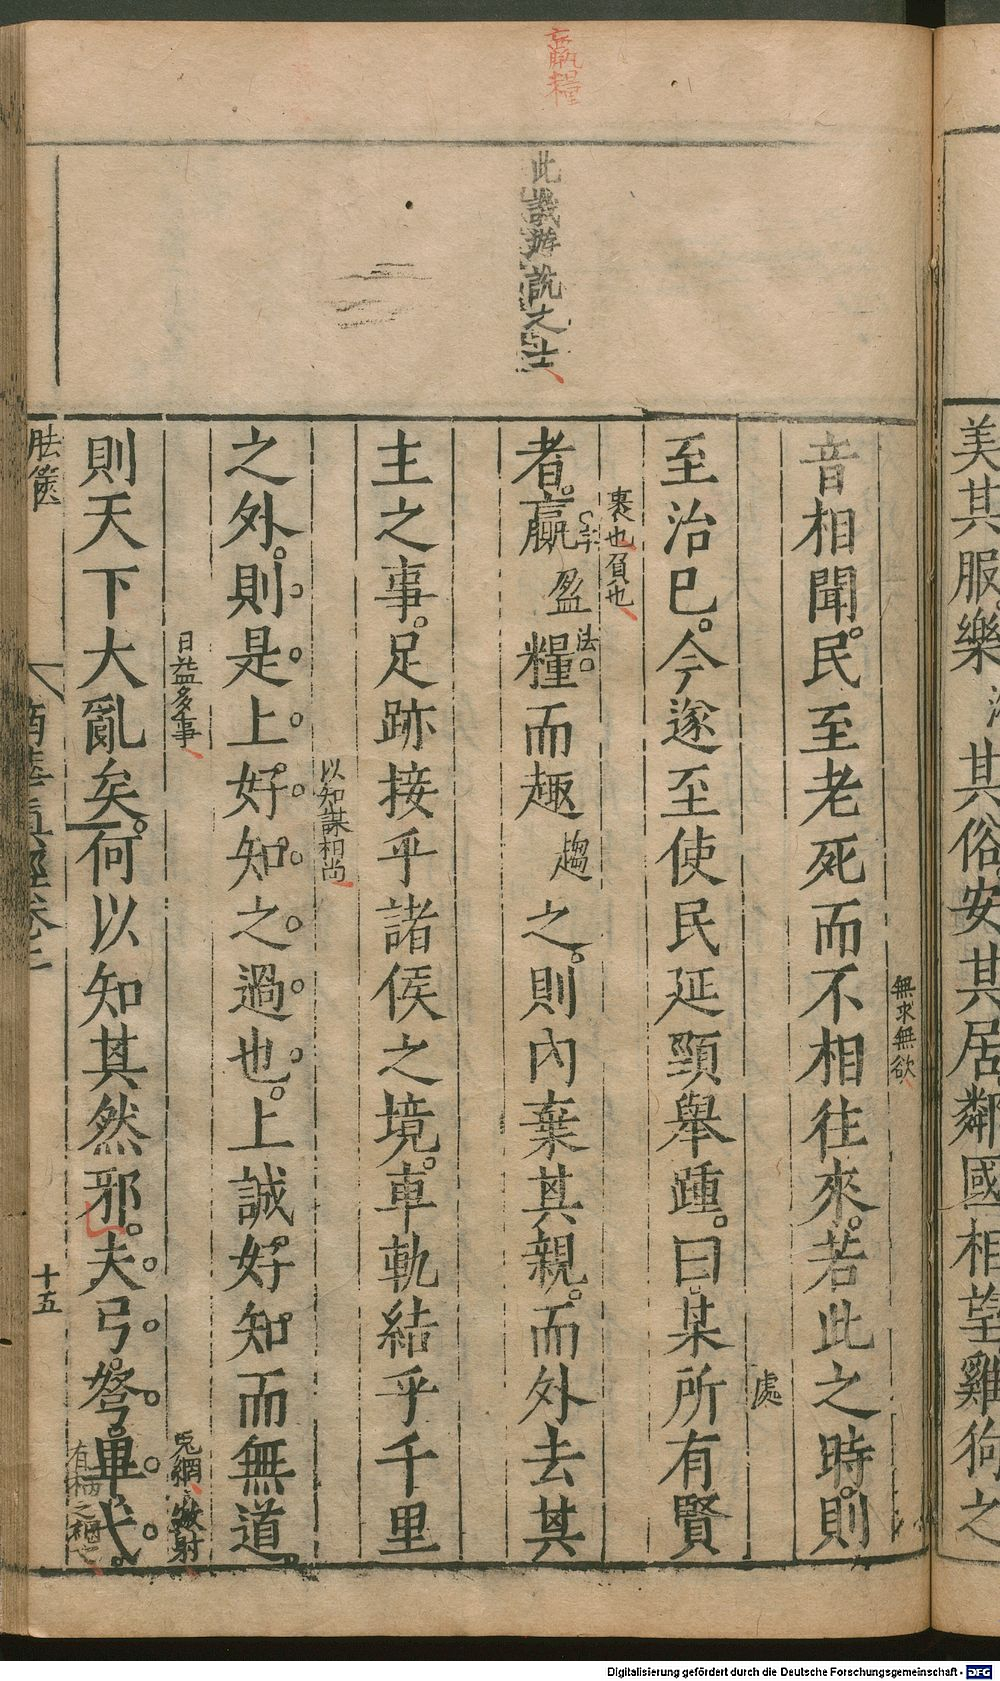 美其服樂
其俗安其居鄰國相望雞狗之
嬴糧
此譏游說之士
無求無欲
音相聞民至老死而不相往來若此之時則
處
至治已今遂至使民延頸舉踵曰某所有賢
裹也負也
者嬴盈糧而趣趨之則內棄其親而外去其
法
主之事足跡接乎諸侯之境車軌結乎千里
以知謀相尚
之外則是上好知之過也上誠好知而無道
日益多事
兎網
則天下大亂矣何以知其然邪夫弓弩畢弋
胠篋
南華真經卷三
十五
Digitalisierung gefördert durch die Deutsche Forschungsgemeinschaft - DFG